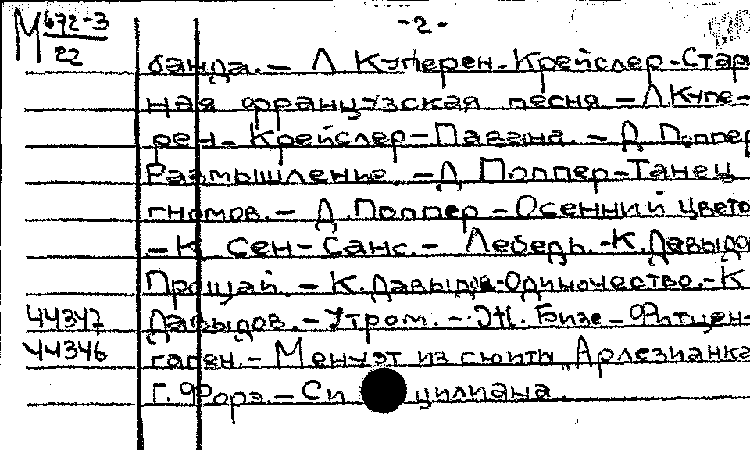 М 672-3 -2-
22
банда. - Л Куперен-Крейслер-Стар
ная французская песня - Л Купе-
рен - Крейслер - Павана. - Д Поппер
Размышление. - Д Поппер - Танец
гномов. - Д. Поппер - Осенний цвето
- К Сен-Санс. - Лебедь. - К. Давыдов
Прощай. - К. Давыдов - Одиночество. - К
44347 Давыдов. - Утром. - Ж. Бизе - Фитцен-
44346 гаген. - Менуэт из сюиты „Арлезианка
Г. Форэ. - Си цилиана.